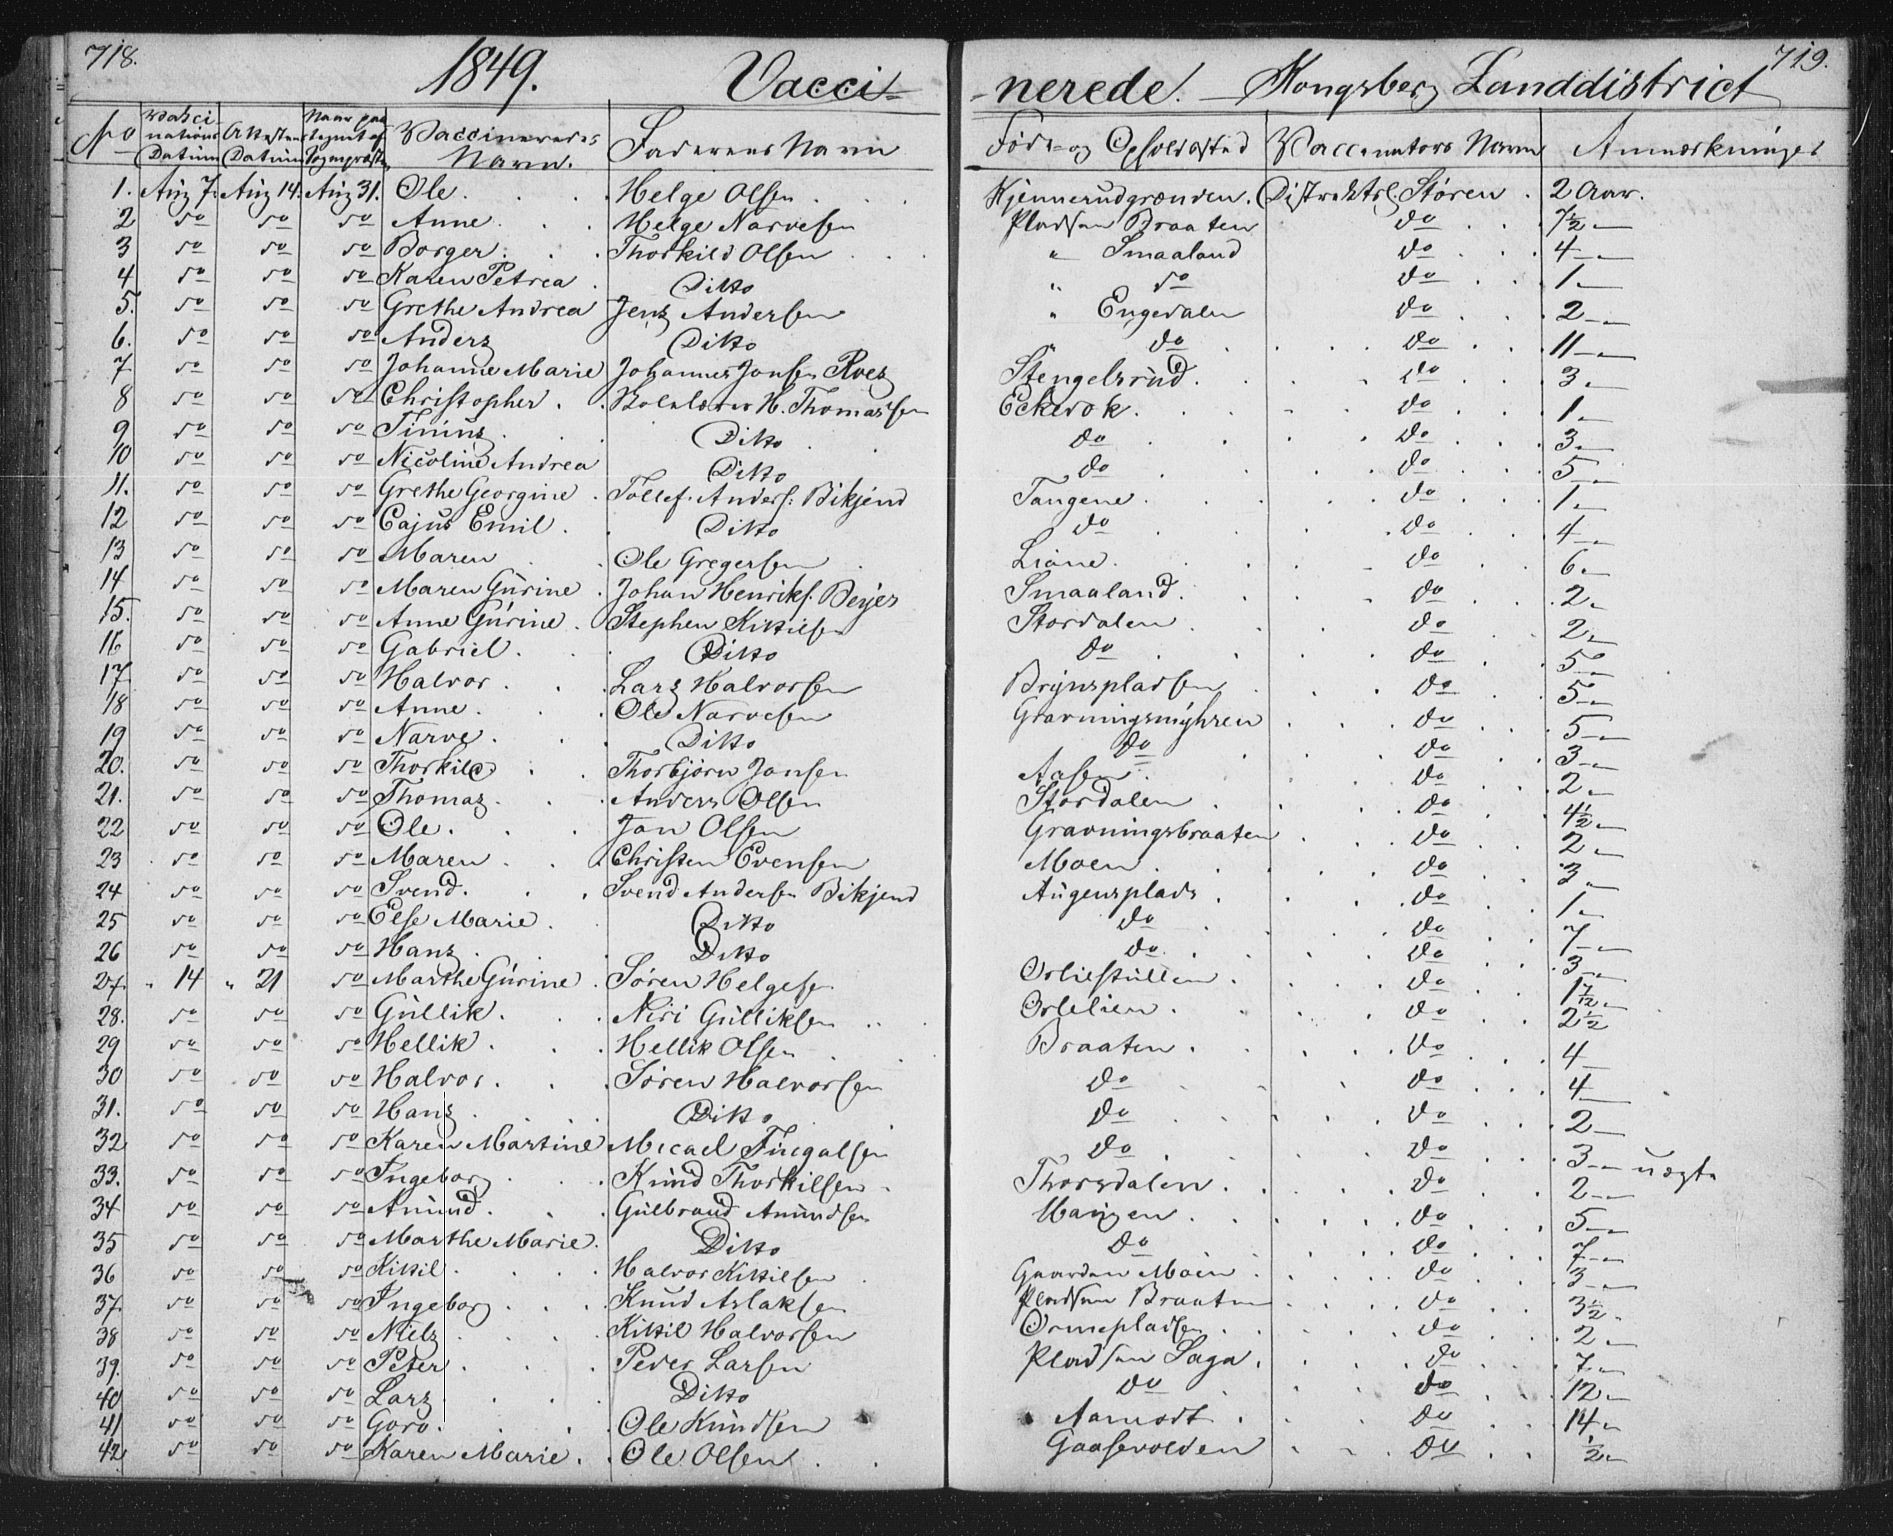 718.
1849. Vacci-
nerede. Kongsberg Landdistrict
719.
No | Vakcinations Datum | Attestens Datum | Naar paategnet af Sognepræsten | Vaccineredes Navn. | Faderens Navn | Føde- og Opholdssted | Vaccinators Navn | Anmærkninger
1. Aug 7. Aug 14. Aug 31. Ole. Helge Olsen Kjennerudgrænden. Distriktsl. Støren 2 Aar.
2 do do do Anne. Helge Narvesen Pladsen Braaten do 7½ "
3 do do do Borger. Thorkild Olsen " Smaaland do 4 "
4 do do do Karen Petrea Ditto " do do 1 "
5. do do do Grethe Andrea Jens Andersen " Engedalen do 2 "
6. do do do Anders Ditto " do do 11 "
7 do do do Johanne Marie Johannes Jonsen Roes Stengelsrud. do 3 "
8 do do do Christopher. H. Thomassen do 1 "
9 do do do Tinius Ditto do do 3 "
10 do do do Nicoline Andrea Ditto do do 5 "
11. do do do Grethe Georgine Tollef Anders: Bikjend Tangene. do 1 "
12 do do do Cajus Emil. Ditto do do 4 "
13 do do do Maren Ole Gregersen Liane. do 6 "
14 do do do Maren Gurine Johan Henriks. Beyer Smaaland. do 2 "
15. do do do Anne Gurine Stephen Kittilsen Stordalen do 2 "
16 do do do Gabriel. Ditto do do 5 "
17 do do do Halvor. Lars Halvorsen Brynspladsen do 5 "
18 do do do Anne. Ole Narvesen Gravningsmyhren do 5 "
19 do do do Narve. Ditto do do 3 "
20. do do do Thorkild Thorbjørn Jansen Aasen. do 2 "
21. do do do Thomas. Anders Olsen Stordalen do 4½ "
22 do do do Ole. Jan Olsen Gravningsbraaten do 2 "
23 do do do Maren Christen Evensen Moen. do 3 "
24 do do do Svend. Svend Andersen Bikjend Augensplads do 1 "
25 do do do Else Marie. Ditto do do 7 "
26 do do do Hans Ditto do do 3 "
27. " 14 " 21 do Marthe Gurine. Søren Helges. do 1 7/12 "
28. do do do Gullik. Niri Gulliksen do 2½
29 do do do Hellik. Hellik Olsen Braaten. do 4
30 do do do Halvor. Søren Halvorsen do do 4
31. do do do Hans Ditto do do 2
32 do do do Karen Martine Micael Fingalsen do do 3 " uægte
33. do do do Ingeborg Knud Thorkilsen Thorsdalen. do 2 "
34 do do do Amund. Gulbrand Amundsen do 5 "
35 do do do Marthe Marie. Ditto do do 7 "
36 do do do Kittil Halvor Kittilsen Gaarden Moen do 3 "
37. do do do Ingeborg Knud Aslaksen Pladsen Braaten do 3½ "
38 do do do Niels Kittil Halvorsen Ormepladsen do 2 "
39. do do do Peter Peder Larsen Pladsen Saga. do 7 "
40 do do do Lars Ditto do do 12 "
41 do do do Goro. Ole Knudsen Aamodt do 14 "
42. do do do Karen Marie. Ole Olsen Gaasevolden do ½ "